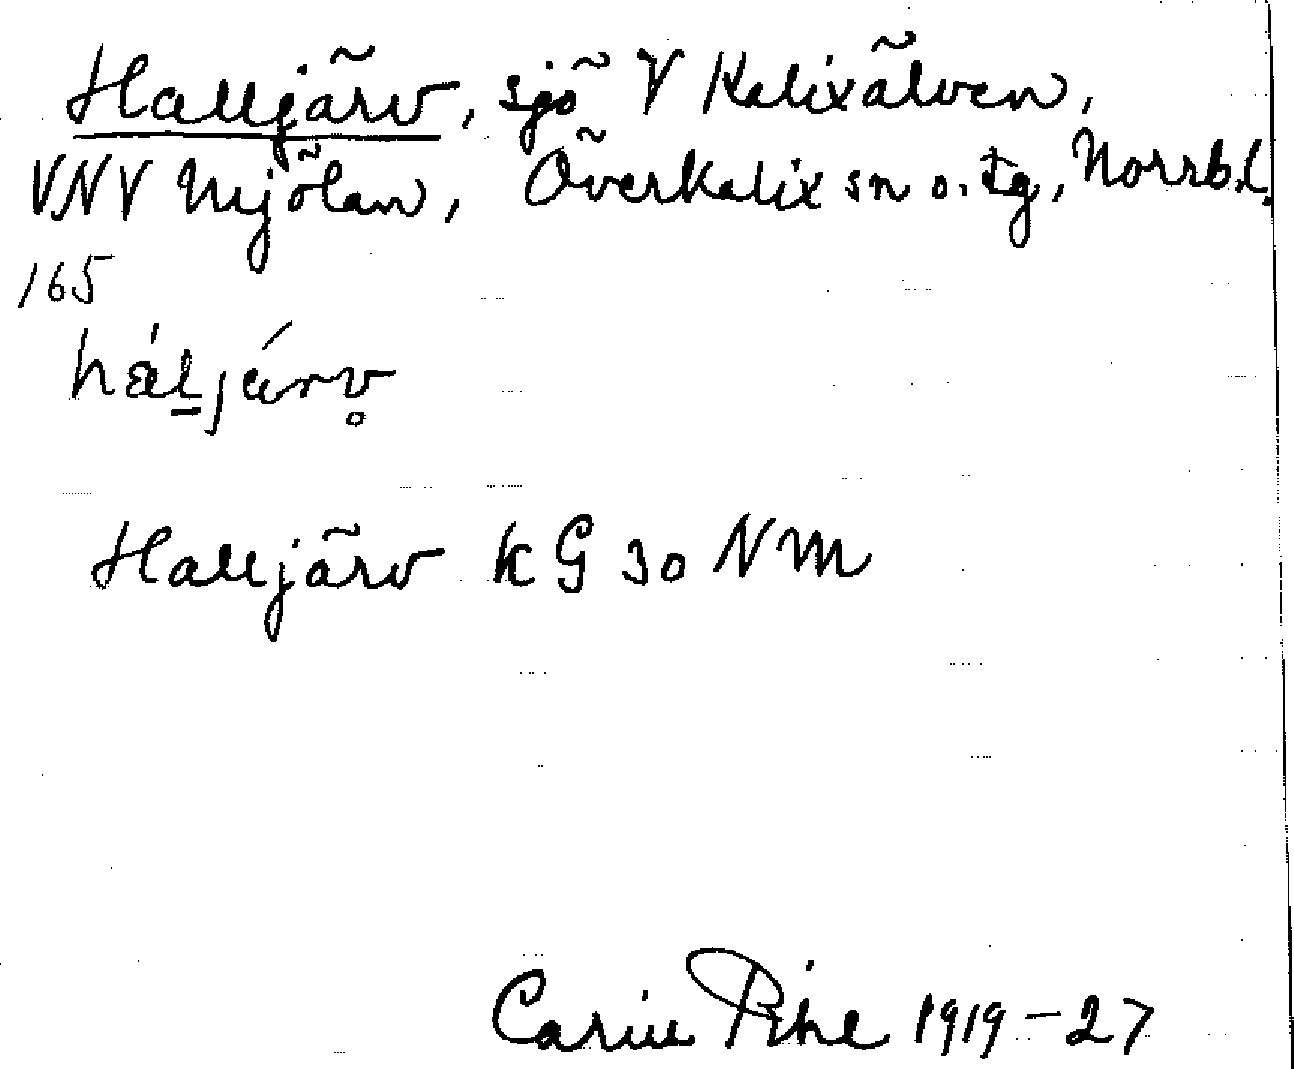 Halljärv, sjö V Kalixälven,
VNV Mjölan, Överkalix sn o. tg, Norrb.l.
165
háḻjárv̥
Halljärv KG 30 NM
Carin Pihl 1919-27